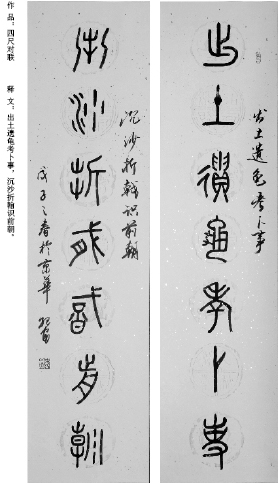 出土遗龟考卜事
出土遺龜考卜事
沉沙折戟识前朝
沉沙折戟識前朝
戊子之春於京華
作 品：四尺对联 释 文：出土遗龟考卜事，沉沙折戟识前朝。